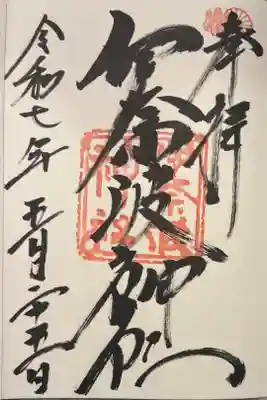 奉拝
伊奈波神社
令和七年五月二十五日